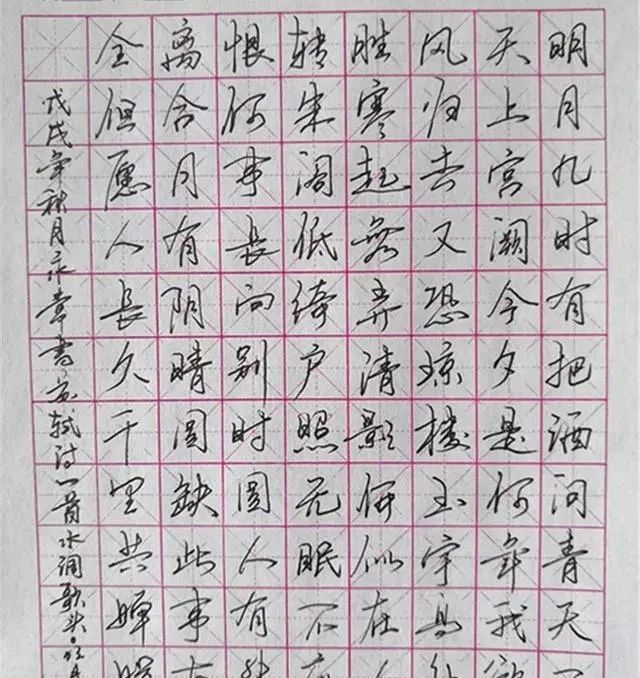 明月几时有把酒问青天不
天上宫阙今夕是何年我欲
风归去又恐琼楼玉宇高处
胜寒起舞弄清影何似在人
转朱阁低绮户照无眠不应
恨何事长向别时圆人有
离合月有阴晴圆缺此事古
全但愿人长久千里共婵娟
戊戌年秋月永章书苏轼诗一首水调歌头·明月